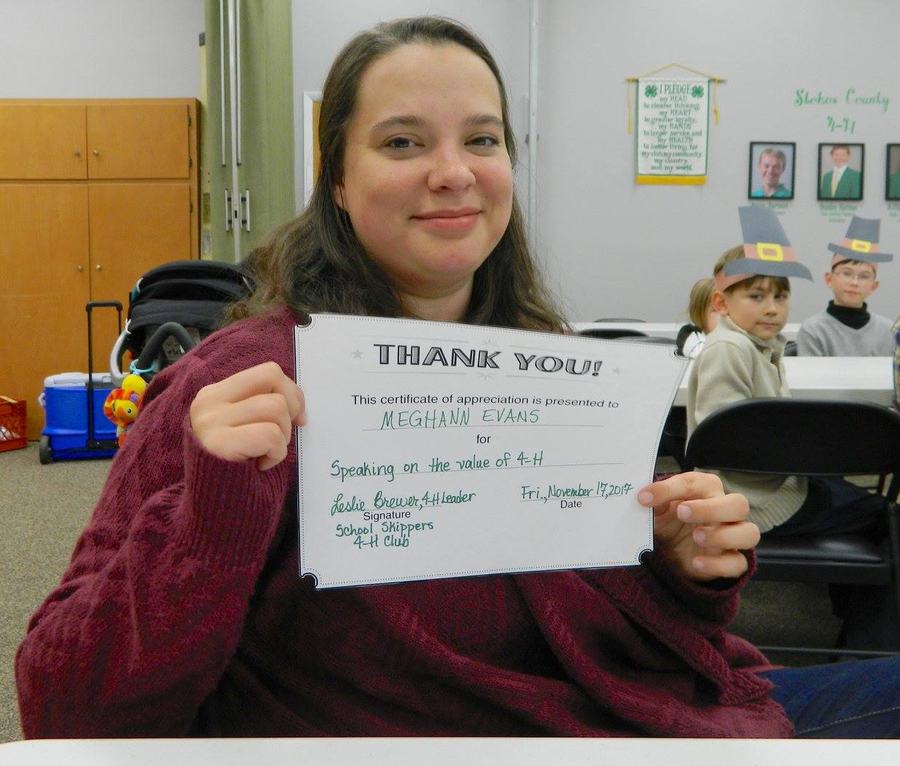 THANK YOU!
This certificate of appreciation is presented to
MEGHANN EVANS
for
Speaking on the value of 4-H
Leslie Brewer, 4-H Leader
Signature
School Skippers
4-H Club
Fri., November 17, 2017
Date
I PLEDGE
my HEAD
to clearer thinking,
my HEART
to greater loyalty,
my HANDS
to larger service and
my HEALTH
to better living, for
my club, my community,
my country,
and my world.
Stokes County
4-H